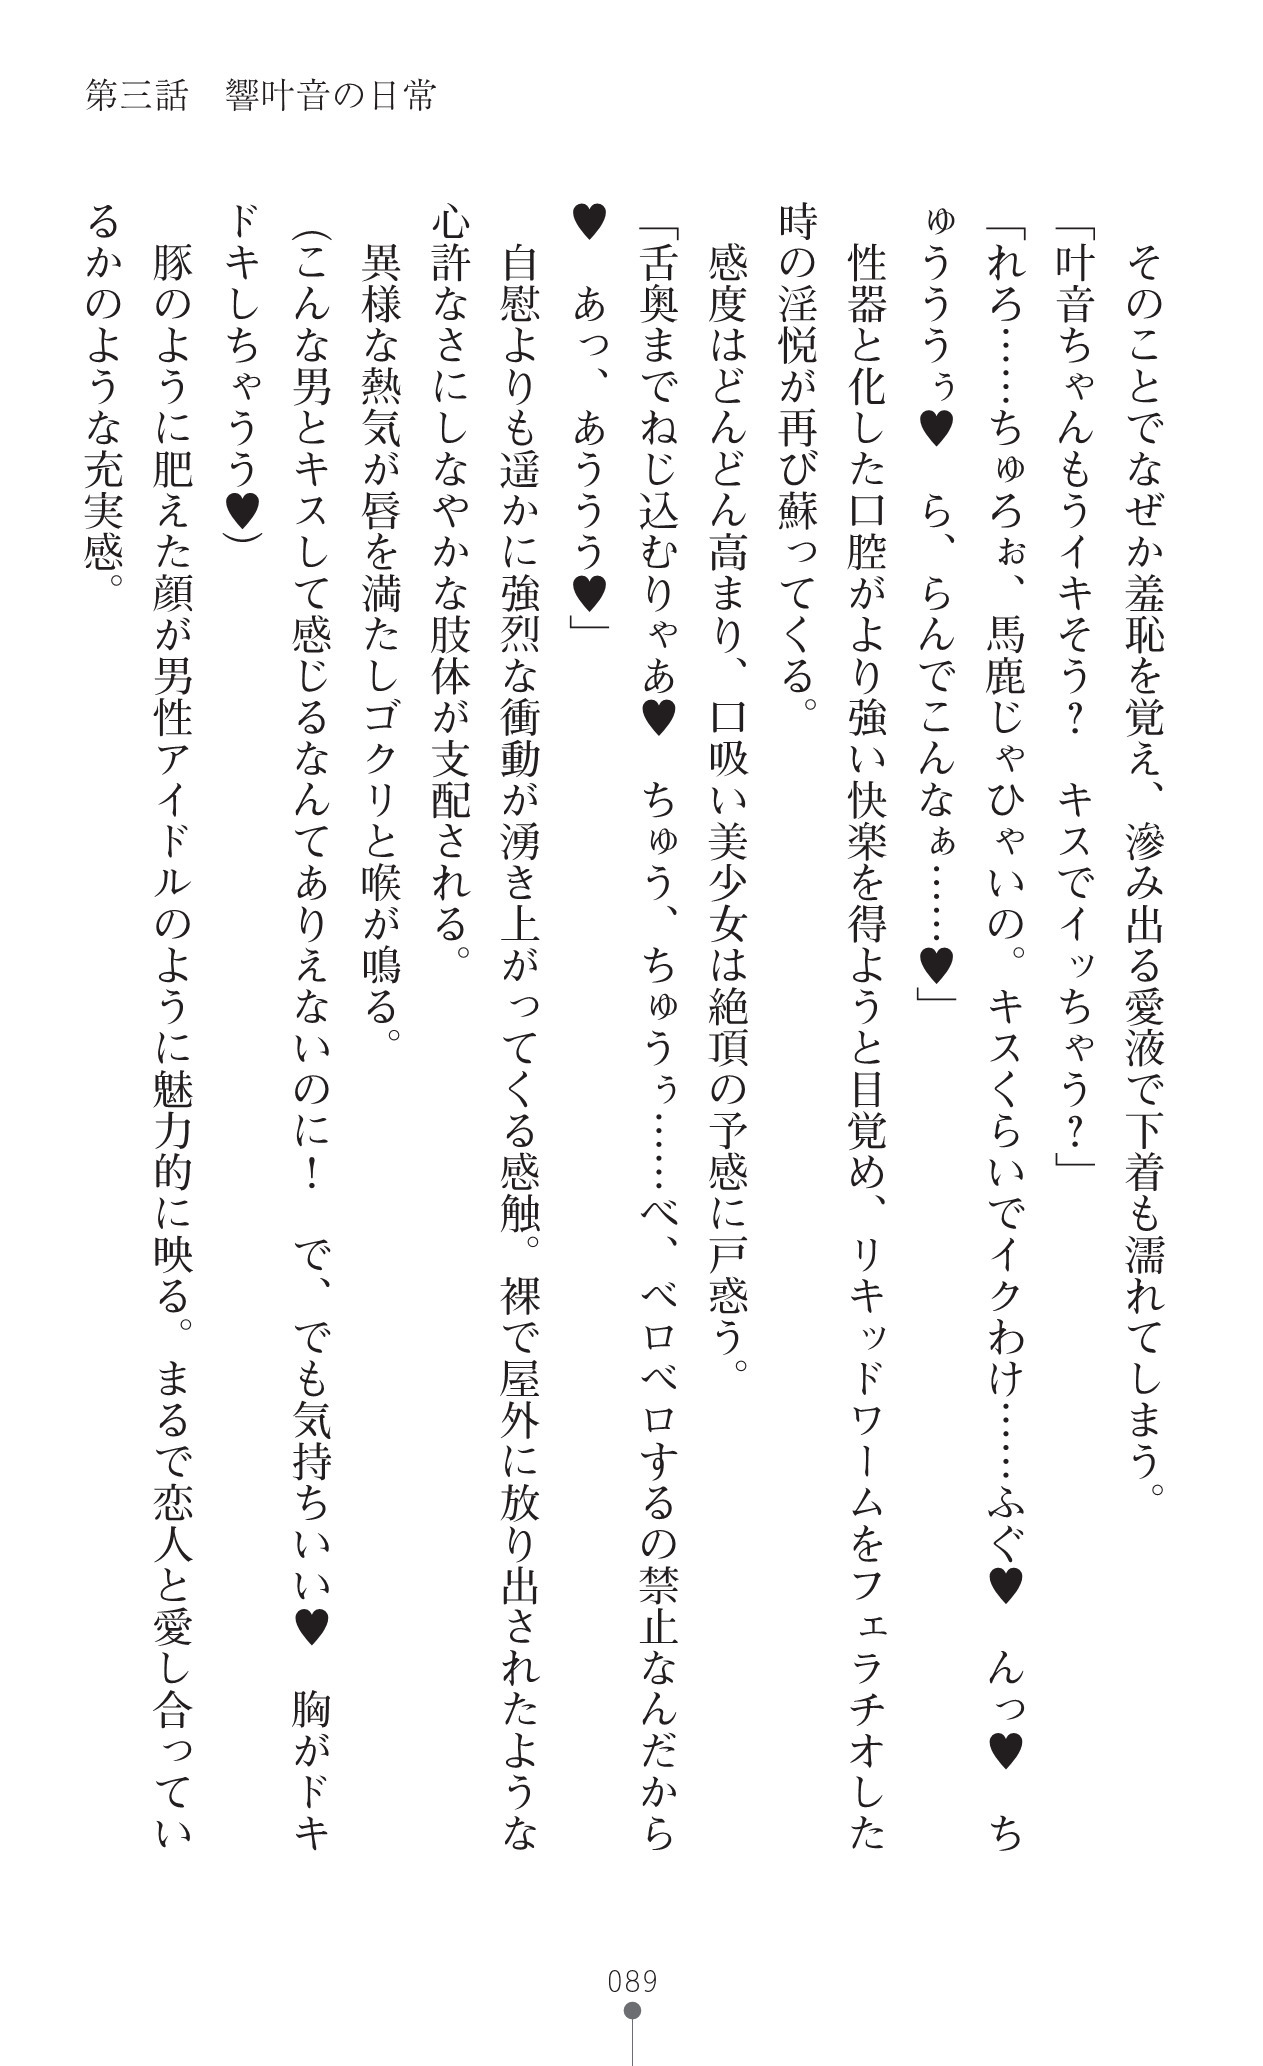 第三話　響叶音の日常
　そのことでなぜか羞恥を覚え、滲み出る愛液で下着も濡れてしまう。
「叶音ちゃんもうイキそう？　キスでイッちゃう？」
「れろ……ちゅろぉ、馬鹿じゃひゃいの。キスくらいでイクわけ……ふぐ♥　んっ♥　ち
ゅうううぅ♥　ら、らんでこんなぁ……♥」
　性器と化した口腔がより強い快楽を得ようと目覚め、リキッドワームをフェラチオした
時の淫悦が再び蘇ってくる。
　感度はどんどん高まり、口吸い美少女は絶頂の予感に戸惑う。
「舌奥までねじ込むりゃあ♥　ちゅう、ちゅうぅ……べ、ベロベロするの禁止なんだから
♥　あっ、あううう♥」
　自慰よりも遥かに強烈な衝動が湧き上がってくる感触。裸で屋外に放り出されたような
心許なさにしなやかな肢体が支配される。
　異様な熱気が唇を満たしゴクリと喉が鳴る。
（こんな男とキスして感じるなんてありえないのに！　で、でも気持ちいい♥　胸がドキ
ドキしちゃうう♥）
　豚のように肥えた顔が男性アイドルのように魅力的に映る。まるで恋人と愛し合ってい
るかのような充実感。
089